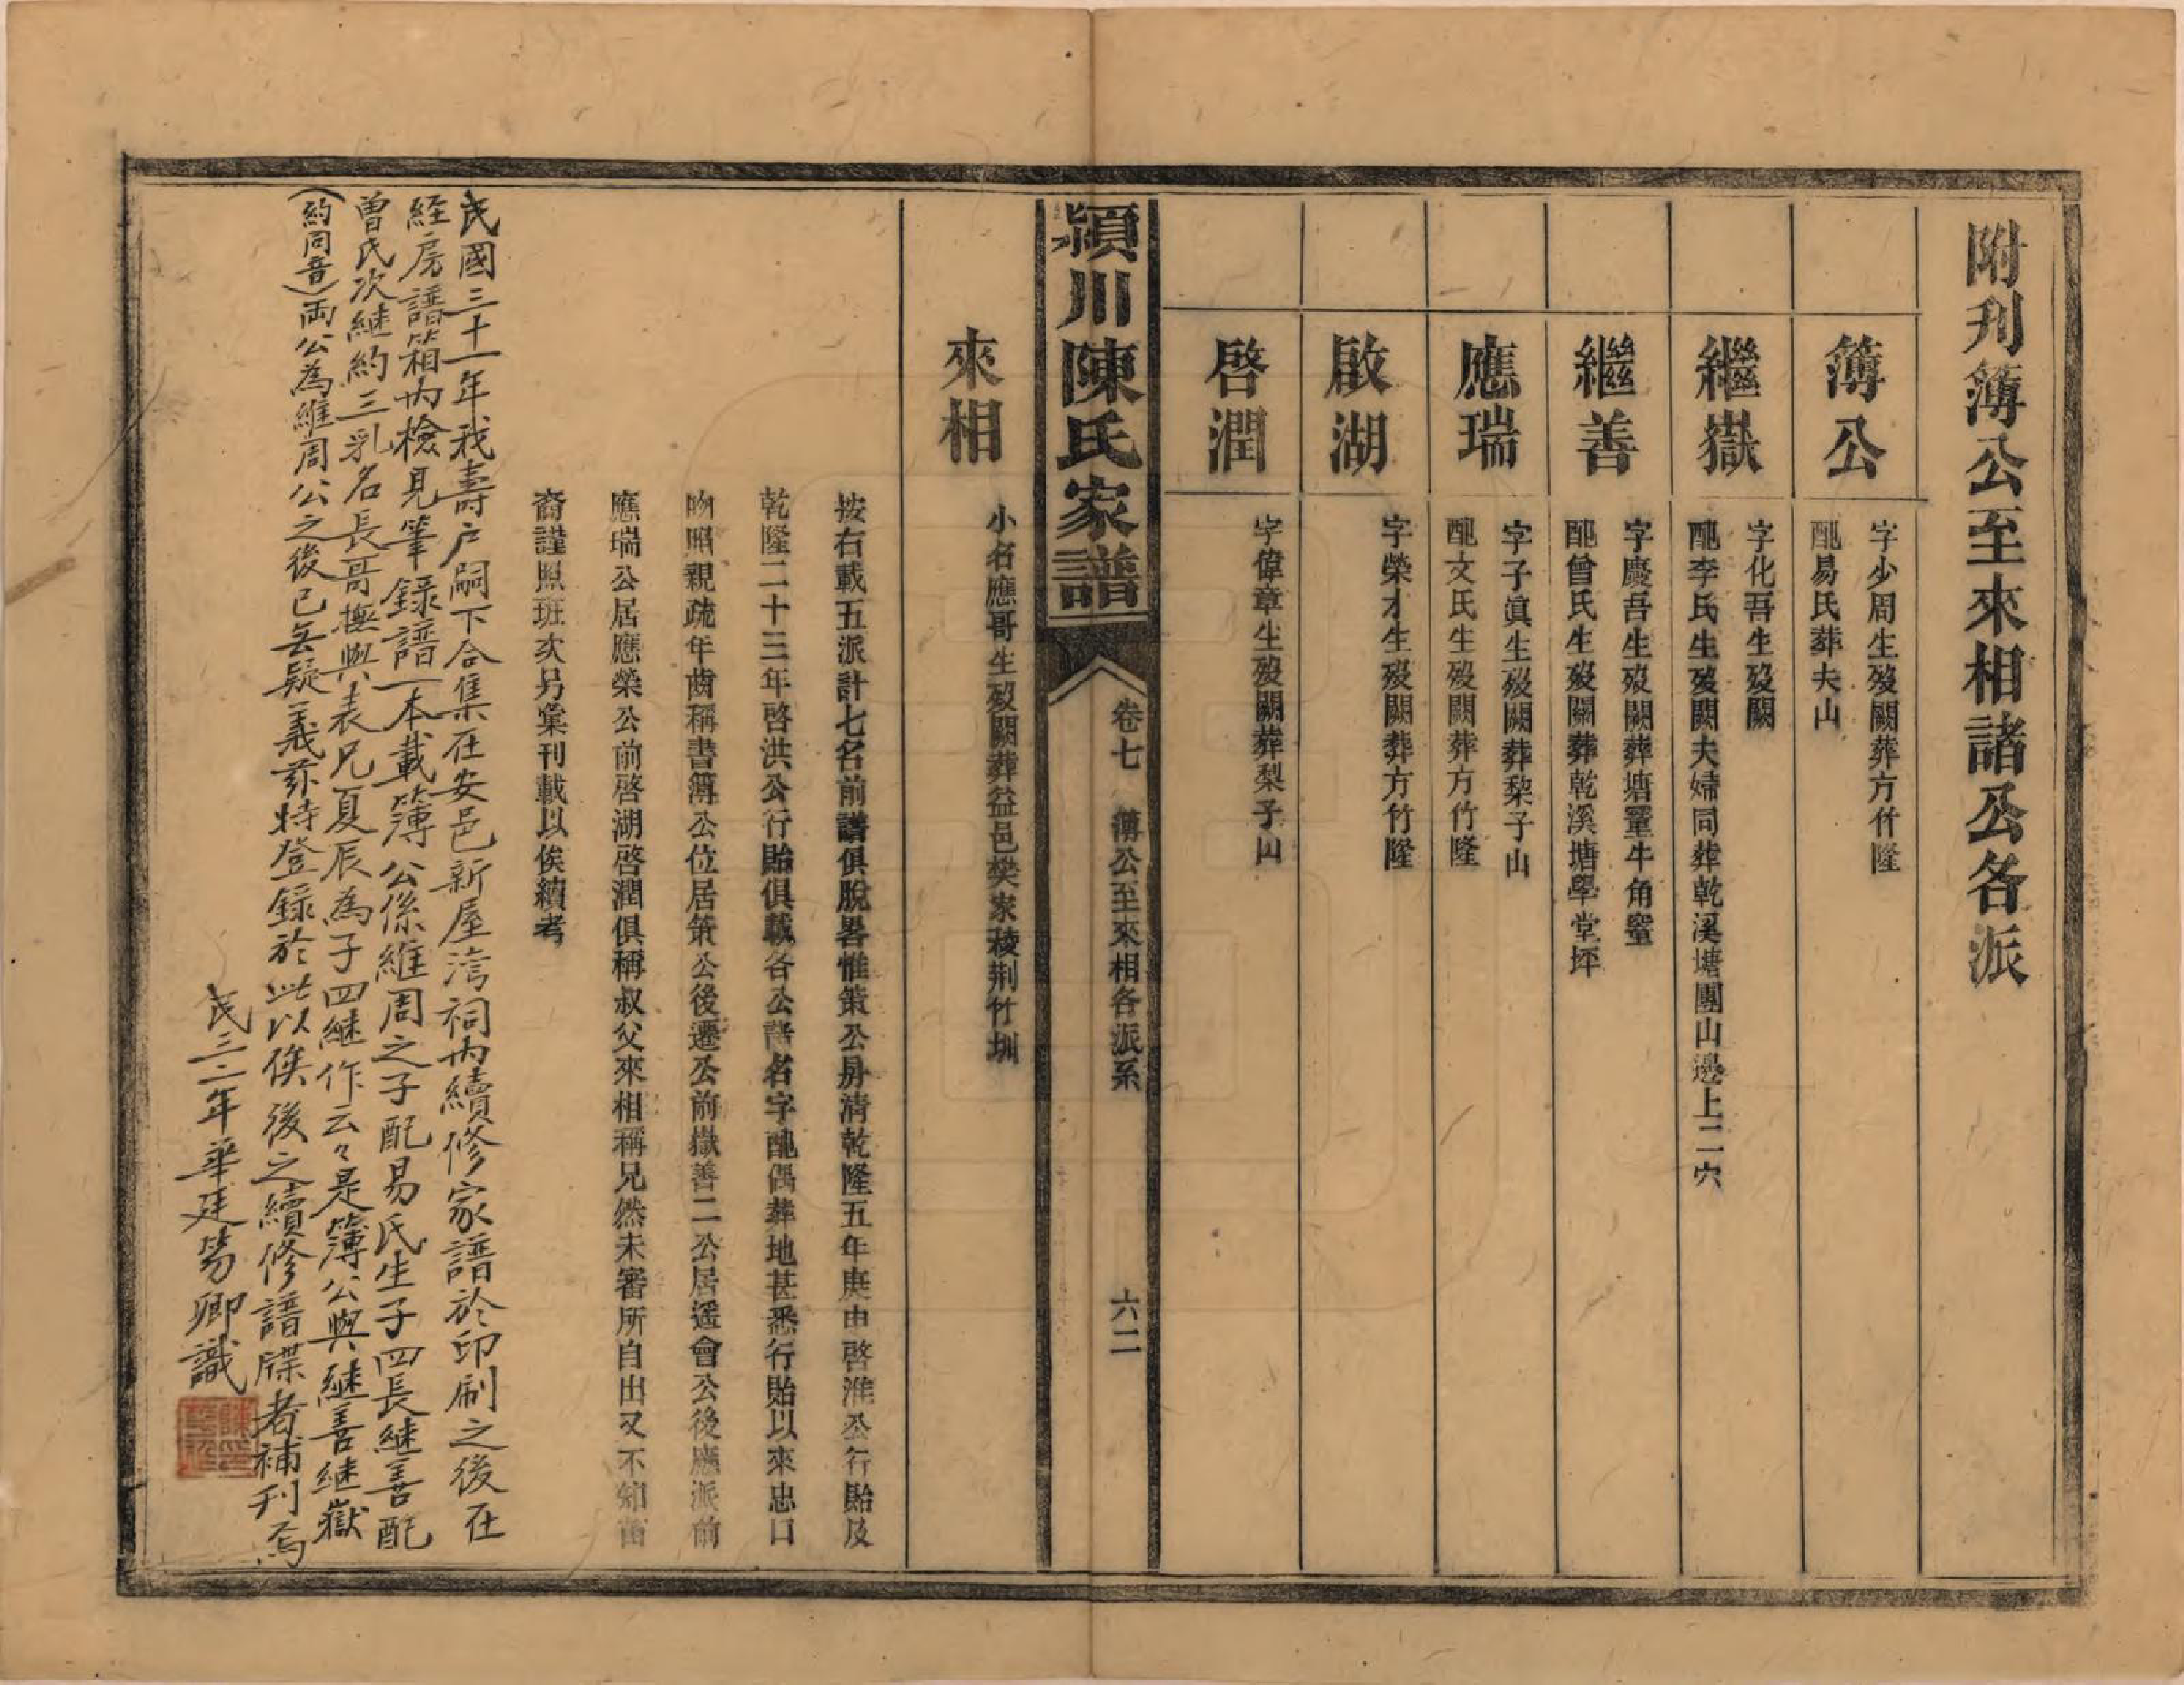 附刋簿公至來相諸公各派
簿公
字少周生殁闕葬方竹隆
配易氏葬夫山
繼嶽
字化吾生殁闕
配李氏生殁闕夫婦同葬乾溪塘團山邊上二穴
繼善
字慶吾生殁闕葬塘窰牛角窰
配曾氏生殁闕葬乾溪塘學堂坪
應瑞
字子眞生殁闕葬梨子山
配文氏生殁闕葬方竹隆
啟湖
字榮才生殁闕葬方竹隆
啓潤
字偉章生殁闕葬梨子山
潁川陳氏家譜
卷七
簿公至來相各派系
六二
來相
小名應哥生殁闕葬益邑樊家稜荆竹圳
按右載五派計七名前譜俱脫畧惟策公房清乾隆五年庚申啓淮公行貽及
乾隆二十三年啓洪公行貽俱載各公諱名字配偶葬地甚悉行貽以來忠口
吻照親疏年齒稱書簿公位居策公後遷公前嶽善二公居遥會公後應派前
應瑞公居應榮公前啓湖啓潤俱稱叔父來相稱兄然未審所自出又不知苗
裔謹照班次另彙刊載以俟續考
民國三十一年我壽户嗣下合集在安邑新屋湾祠內續修家譜於印刷之後在
經房譜箱內檢見筆錄譜一本載簿公係維周之子配易氏生子四長継善配
曾氏次継約三乳名長哥撫與表兄夏辰為子四継作云々是簿公與継善継嶽
(約同音)両公為維周公之後已無疑義茲特登錄於此以俟後之續修譜牒者補刊焉
民三二年華廷笏卿識